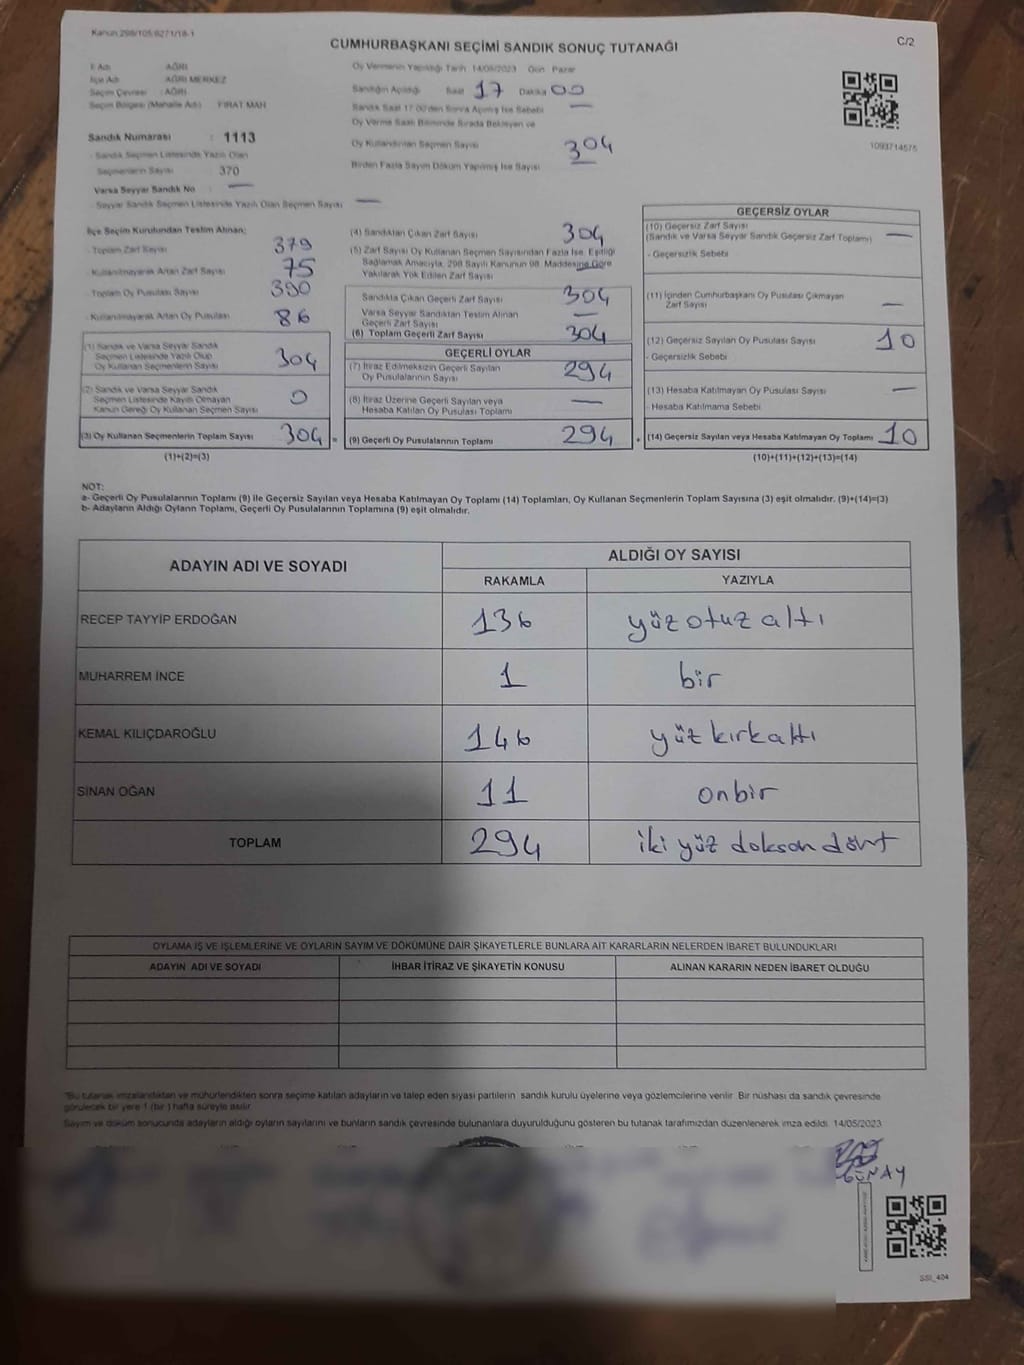 Kanun 298/105 6271/18-1
CUMHURBAŞKANI SEÇİMİ SANDIK SONUÇ TUTANAĞI
C/2
İl Adı AĞRI
İlçe Adı AĞRI MERKEZ
Seçim Çevresi : AĞRI
Seçim Bölgesi (Mahalle Adı) FIRAT MAH
Sandık Numarası : 1113
- Sandık Seçmen Listesinde Yazılı Olan
Seçmenlerin Sayısı 370
Varsa Seyyar Sandık No : —
- Seyyar Sandık Seçmen Listesinde Yazılı Olan Seçmen Sayısı —
Oy Vermenin Yapıldığı Tarih 14/05/2023 Gün Pazar
Sandığın Açıldığı Saat 17 Dakika 00
Sandık Saat 17:00'den Sonra Açılmış İse Sebebi —
Oy Verme Saati Bitiminde Sırada Bekleyen ve
Oy Kullandırılan Seçmen Sayısı 304
Birden Fazla Sayım Döküm Yapılmış İse Sayısı —
1093714575
İlçe Seçim Kurulundan Teslim Alınan;
- Toplam Zarf Sayısı 379
- Kullanılmayarak Artan Zarf Sayısı 75
- Toplam Oy Pusulası Sayısı 390
- Kullanılmayarak Artan Oy Pusulası 86
(1) Sandık ve Varsa Seyyar Sandık
Seçmen Listesinde Yazılı Olup
Oy Kullanan Seçmenlerin Sayısı 304
(2) Sandık ve Varsa Seyyar Sandık
Seçmen Listesinde Kayıtlı Olmayan
Kanun Gereği Oy Kullanan Seçmen Sayısı 0
(3) Oy Kullanan Seçmenlerin Toplam Sayısı 304 =
(1)+(2)=(3)
(4) Sandıktan Çıkan Zarf Sayısı 304
(5) Zarf Sayısı Oy Kullanan Seçmen Sayısından Fazla İse, Eşitliği
Sağlamak Amacıyla, 298 Sayılı Kanunun 98. Maddesine Göre
Yakılarak Yok Edilen Zarf Sayısı —
Sandıkta Çıkan Geçerli Zarf Sayısı 304
Varsa Seyyar Sandıktan Teslim Alınan
Geçerli Zarf Sayısı —
(6) Toplam Geçerli Zarf Sayısı 304
GEÇERLİ OYLAR
(7) İtiraz Edilmeksizin Geçerli Sayılan
Oy Pusulalarının Sayısı 294
(8) İtiraz Üzerine Geçerli Sayılan veya
Hesaba Katılan Oy Pusulası Toplamı —
(9) Geçerli Oy Pusulalarının Toplamı 294 +
GEÇERSİZ OYLAR
(10) Geçersiz Zarf Sayısı
(Sandık ve Varsa Seyyar Sandık Geçersiz Zarf Toplamı) —
- Geçersizlik Sebebi
(11) İçinden Cumhurbaşkanı Oy Pusulası Çıkmayan
Zarf Sayısı —
(12) Geçersiz Sayılan Oy Pusulası Sayısı 10
- Geçersizlik Sebebi
(13) Hesaba Katılmayan Oy Pusulası Sayısı —
- Hesaba Katılmama Sebebi
(14) Geçersiz Sayılan veya Hesaba Katılmayan Oy Toplamı 10
(10)+(11)+(12)+(13)=(14)
NOT:
a- Geçerli Oy Pusulalarının Toplamı (9) ile Geçersiz Sayılan veya Hesaba Katılmayan Oy Toplamı (14) Toplamları, Oy Kullanan Seçmenlerin Toplam Sayısına (3) eşit olmalıdır. (9)+(14)=(3)
b- Adayların Aldığı Oyların Toplamı, Geçerli Oy Pusulalarının Toplamına (9) eşit olmalıdır.
ADAYIN ADI VE SOYADI ALDIĞI OY SAYISI
RAKAMLA YAZIYLA
RECEP TAYYİP ERDOĞAN 136 yüz otuz altı
MUHARREM İNCE 1 bir
KEMAL KILIÇDAROĞLU 146 yüz kırk altı
SİNAN OĞAN 11 onbir
TOPLAM 294 iki yüz doksan dört
OYLAMA İŞ VE İŞLEMLERİNE VE OYLARIN SAYIM VE DÖKÜMÜNE DAİR ŞİKAYETLERLE BUNLARA AİT KARARLARIN NELERDEN İBARET BULUNDUKLARI
ADAYIN ADI VE SOYADI İHBAR İTİRAZ VE ŞİKAYETİN KONUSU ALINAN KARARIN NEDEN İBARET OLDUĞU
*Bu tutanak imzalandıktan ve mühürlendikten sonra seçime katılan adayların ve talep eden siyasi partilerin sandık kurulu üyelerine veya gözlemcilerine verilir. Bir nüshası da sandık çevresinde
görülecek bir yere 1 (bir ) hafta süreyle asılır.
Sayım ve döküm sonucunda adayların aldığı oyların sayılarını ve bunların sandık çevresinde bulunanlara duyurulduğunu gösteren bu tutanak tarafımızdan düzenlenerek imza edildi. 14/05/2023
SSI_404